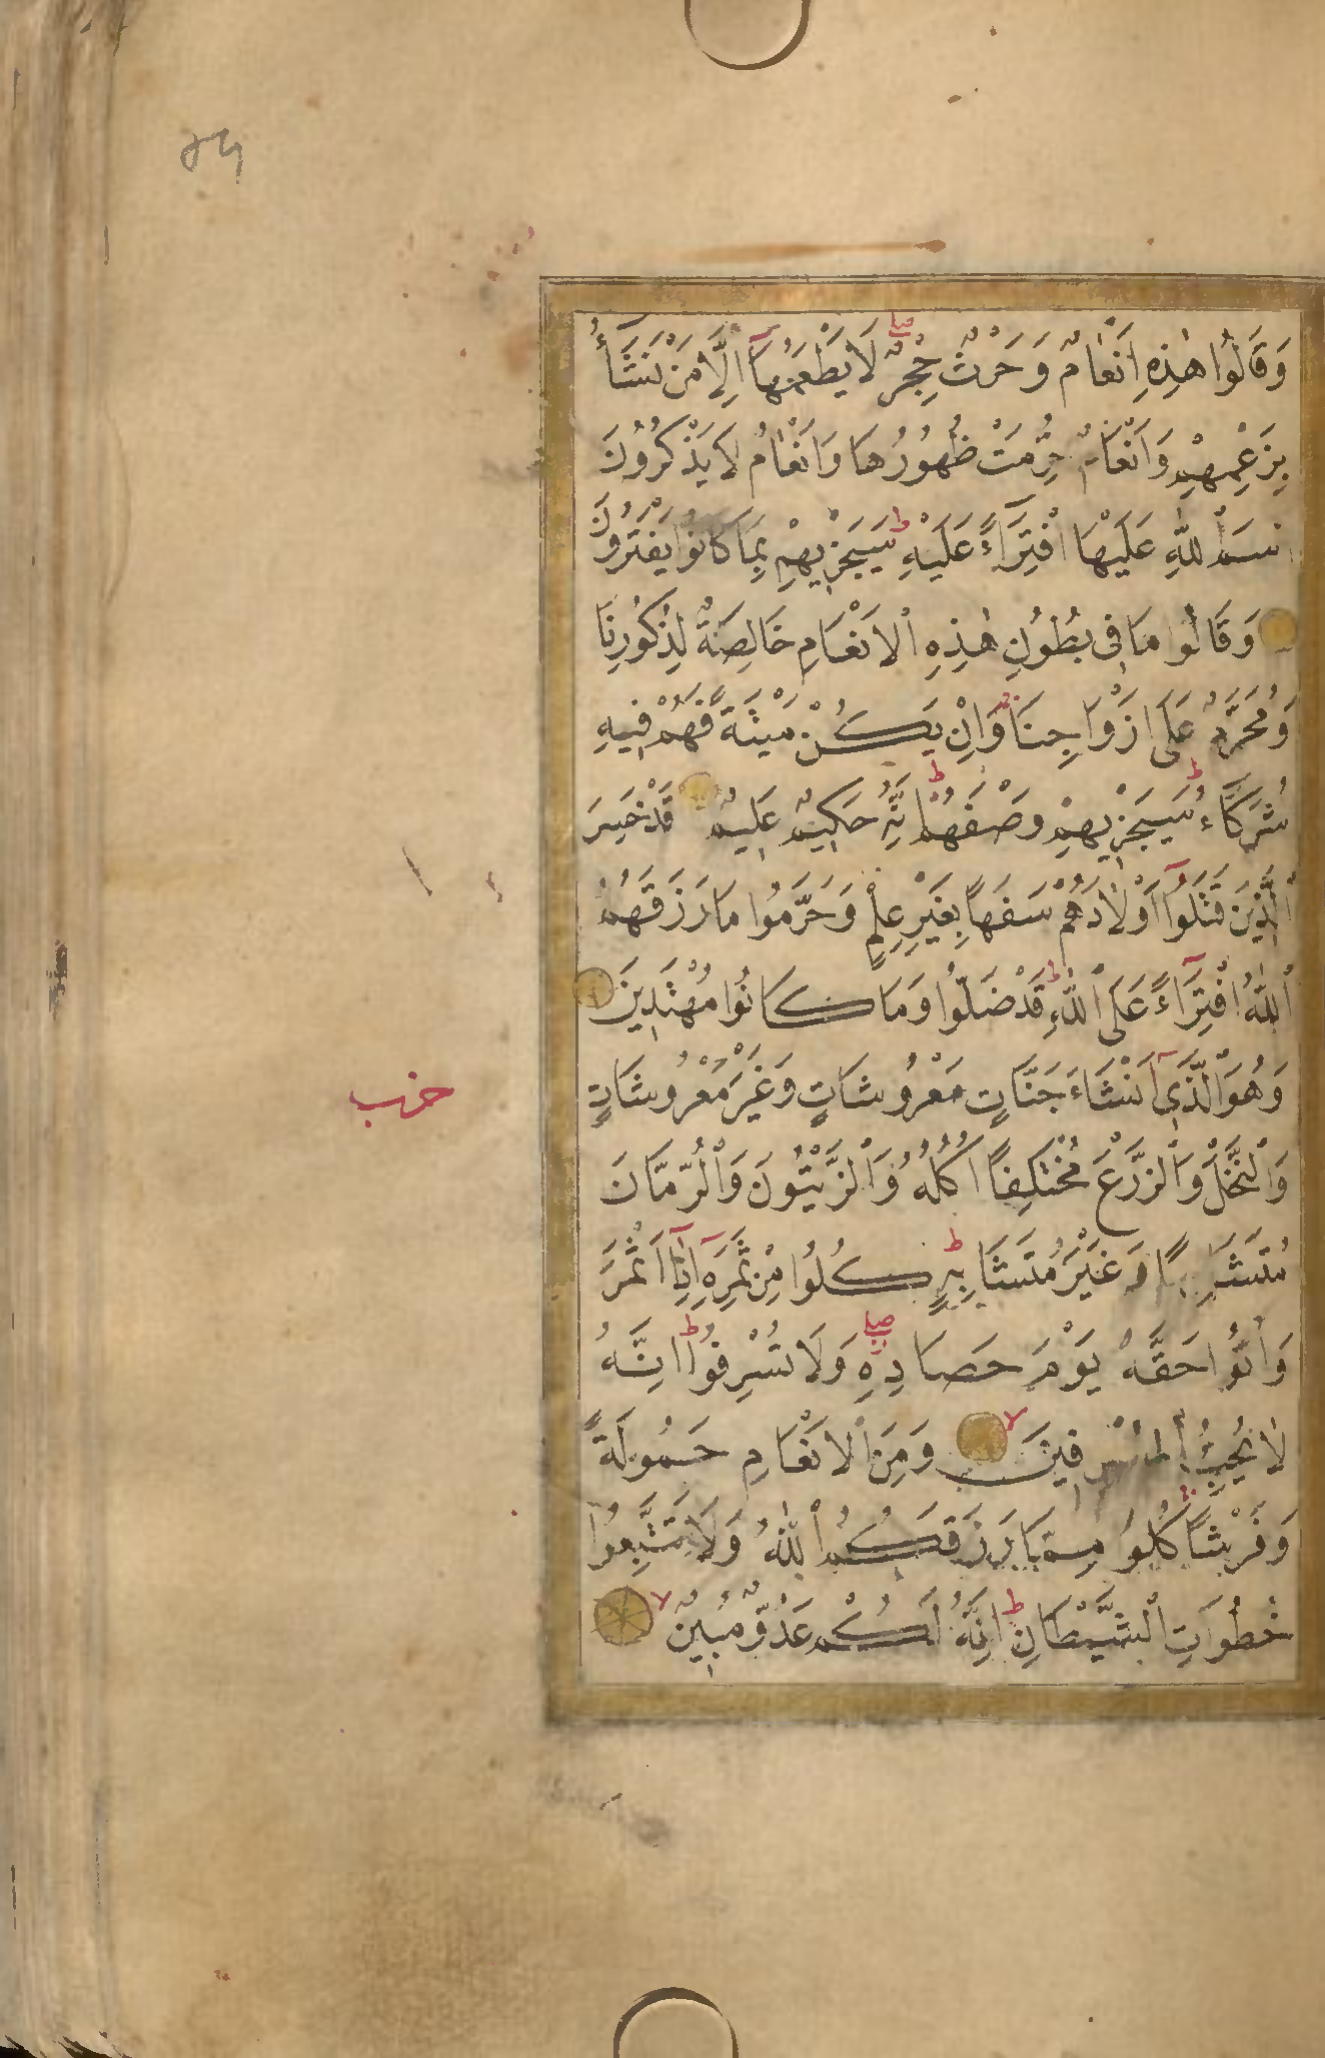 وَقَالُوا هٰذِهِ اَنْعَامٌ وَحَرْثٌ حِجْرٌ لَا يَطْعَمُهَا اِلَّا مَنْ نَشَاءُ
بِزَعْمِهِمْ وَاَنْعَامٌ حُرِّمَتْ ظُهُورُهَا وَاَنْعَامٌ لَا يَذْكُرُونَ
اسْمَ اللّٰهِ عَلَيْهَا افْتِرَاءً عَلَيْهِ سَيَجْزِيهِمْ بِمَا كَانُوا يَفْتَرُونَ
وَقَالُوا مَا فِي بُطُونِ هٰذِهِ الْاَنْعَامِ خَالِصَةٌ لِذُكُورِنَا
وَمُحَرَّمٌ عَلٰى اَزْوَاجِنَا وَاِنْ يَكُنْ مَيْتَةً فَهُمْ فِيهِ
شُرَكَاءُ سَيَجْزِيهِمْ وَصْفَهُمْ اِنَّهُ حَكِيمٌ عَلِيمٌ قَدْ خَسِرَ
الَّذِينَ قَتَلُوا اَوْلَادَهُمْ سَفَهًا بِغَيْرِ عِلْمٍ وَحَرَّمُوا مَا رَزَقَهُمُ
اللّٰهُ افْتِرَاءً عَلَى اللّٰهِ قَدْ ضَلُّوا وَمَا كَانُوا مُهْتَدِينَ
وَهُوَ الَّذِي اَنْشَاَ جَنَّاتٍ مَعْرُوشَاتٍ وَغَيْرَ مَعْرُوشَاتٍ
حزب
وَالنَّخْلَ وَالزَّرْعَ مُخْتَلِفًا اُكُلُهُ وَالزَّيْتُونَ وَالرُّمَّانَ
مُتَشَابِهًا وَغَيْرَ مُتَشَابِهٍ كُلُوا مِنْ ثَمَرِهِ اِذَا اَثْمَرَ
وَاٰتُوا حَقَّهُ يَوْمَ حَصَادِهِ وَلَا تُسْرِفُوا اِنَّهُ
لَا يُحِبُّ الْمُسْرِفِينَ وَمِنَ الْاَنْعَامِ حَمُولَةً
وَفَرْشًا كُلُوا مِمَّا رَزَقَكُمُ اللّٰهُ وَلَا تَتَّبِعُوا
خُطُوَاتِ الشَّيْطَانِ اِنَّهُ لَكُمْ عَدُوٌّ مُبِينٌ